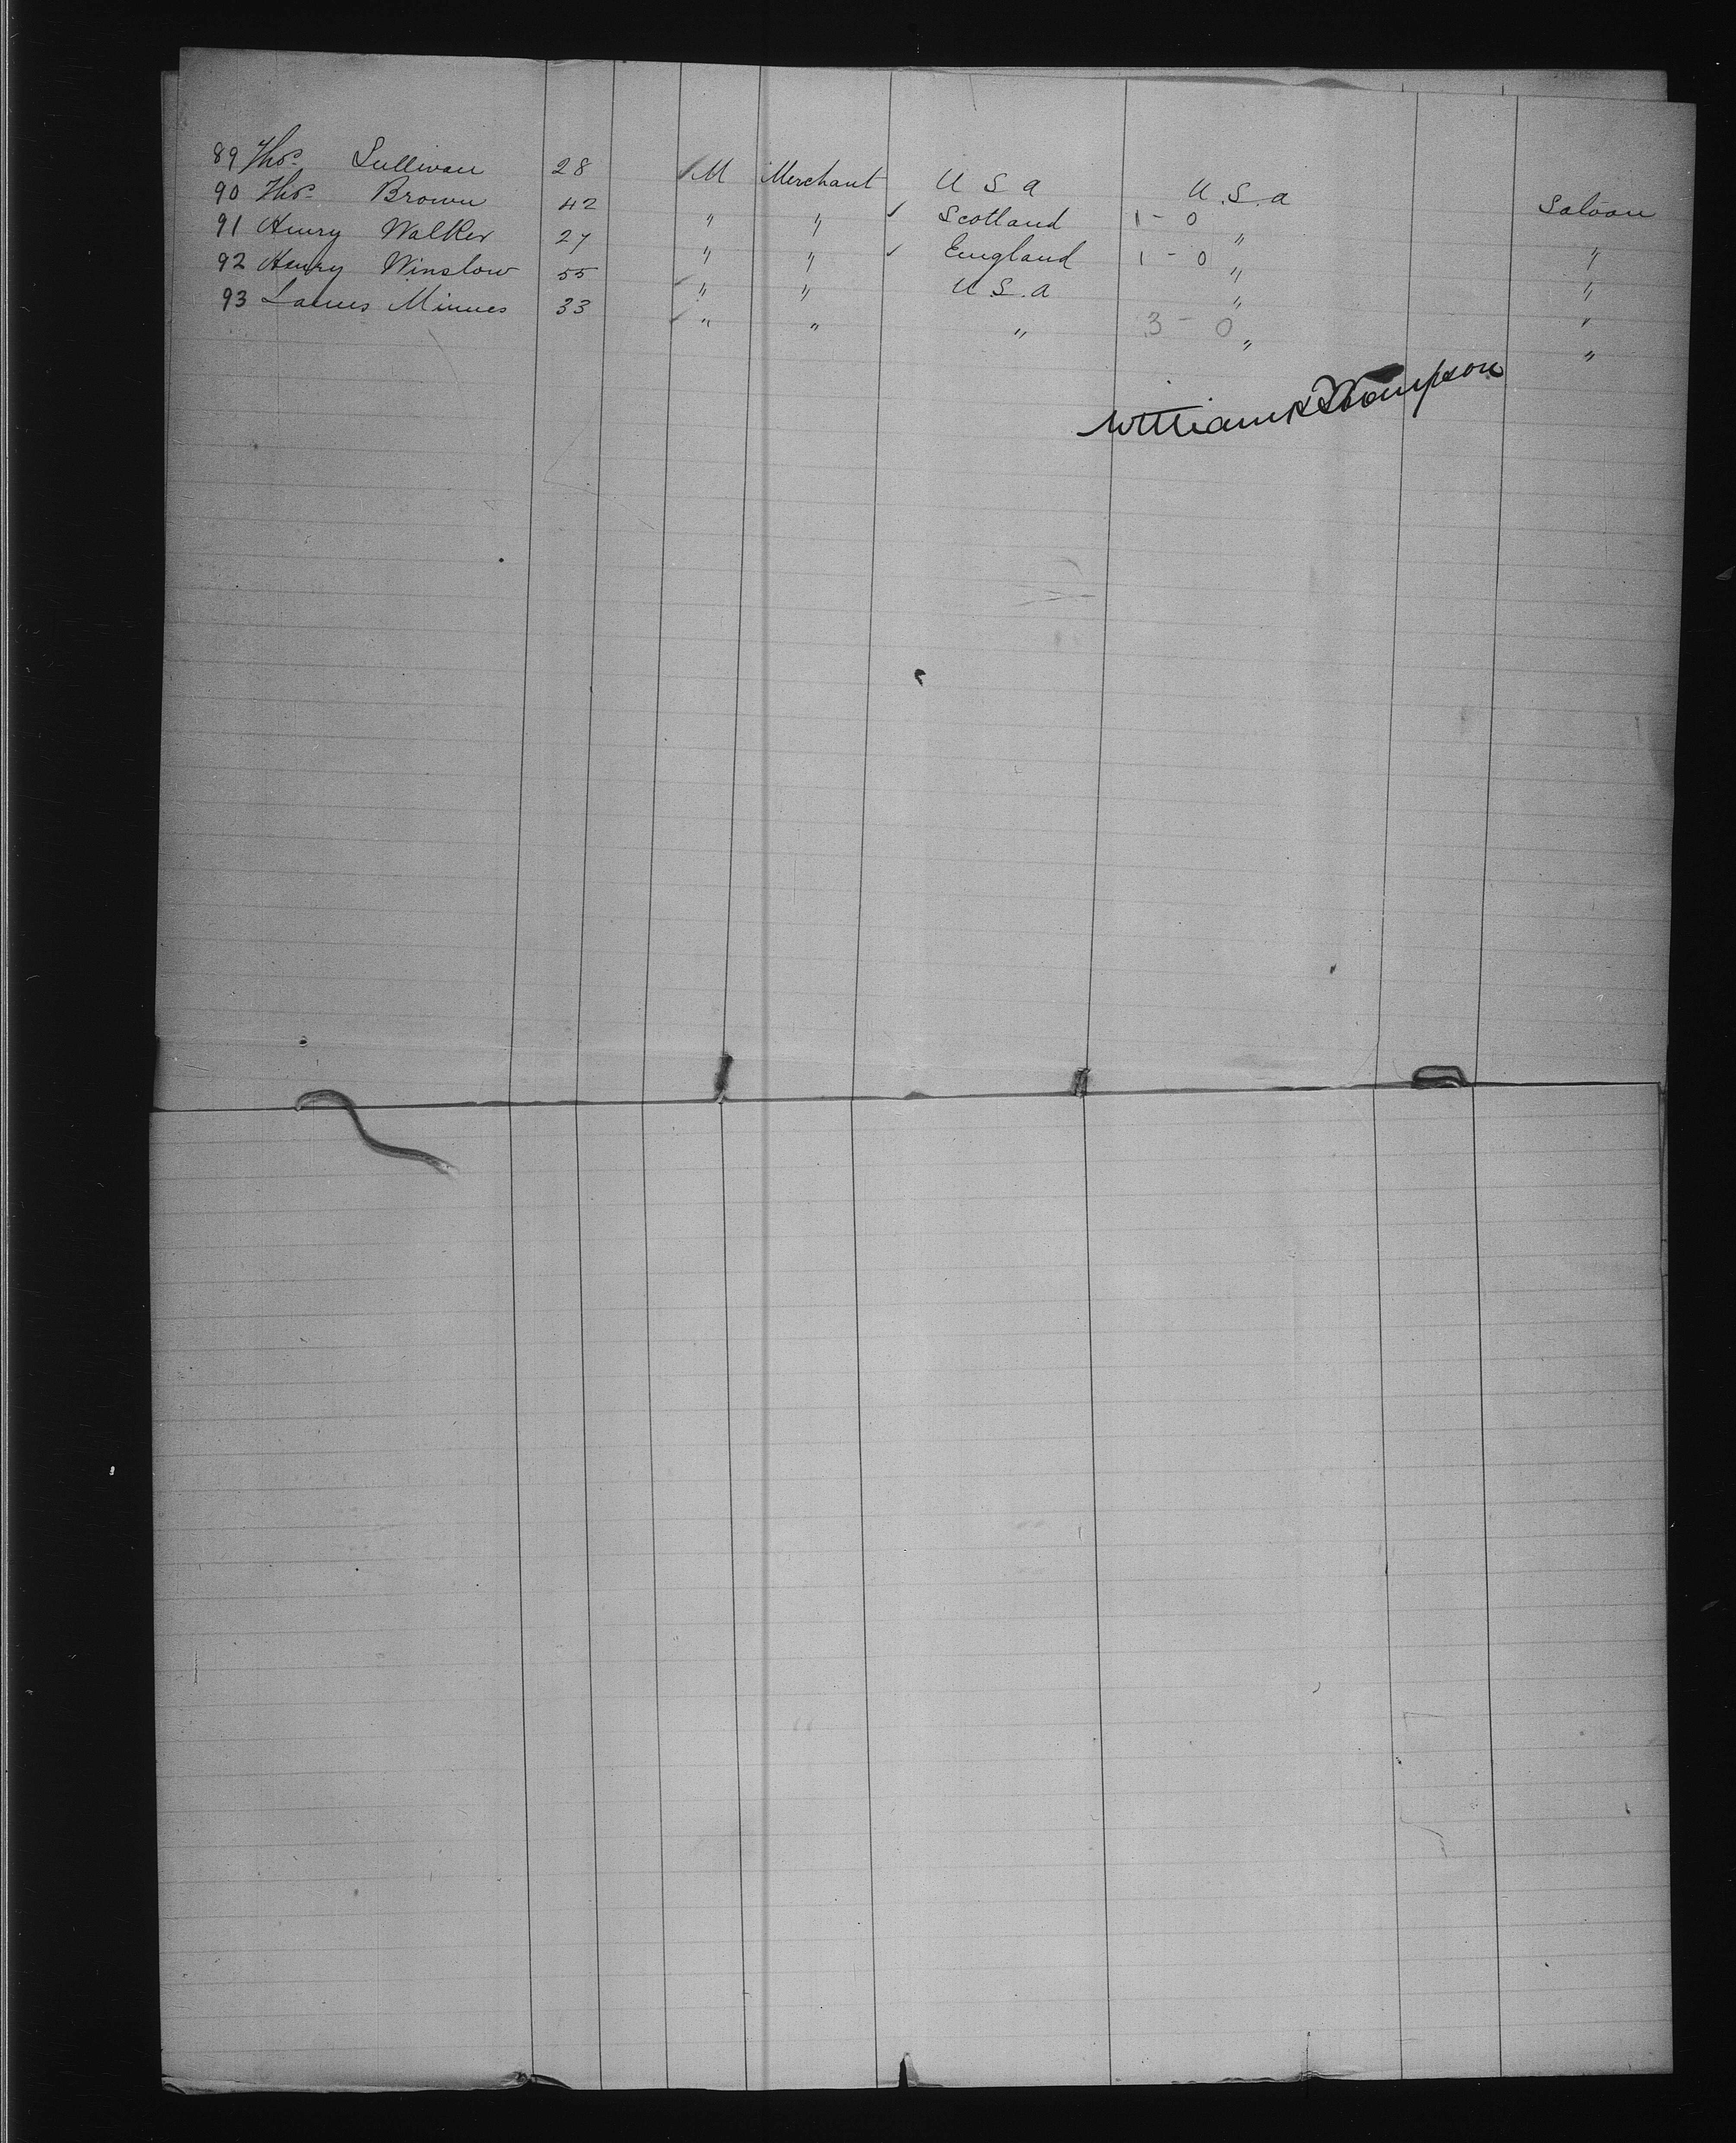 89 Thos. Sullivan 28 M Merchant U S A U.S.A Saloon
90 Thos. Brown 42 " " ✓ Scotland 1 - 0 " "
91 Henry Walker 27 " " ✓ England 1 - 0 " "
92 Henry Winslow 55 " " U.S.A " "
93 Minnes 33 " " " 3 - 0 " "
William Thompson